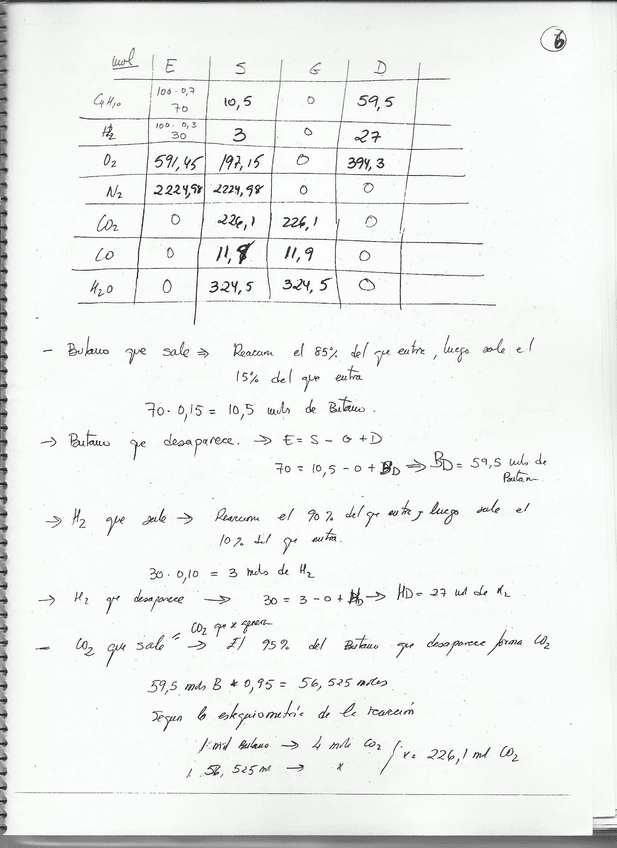 6
mol E S G D
C4H10 100·0,7 70 10,5 0 59,5
H2 100·0,3 30 3 0 27
O2 591,45 197,15 0 394,3
N2 2224,98 2224,98 0 0
CO2 0 226,1 226,1 0
CO 0 11,9 11,9 0
H2O 0 324,5 324,5 0
- Butano que sale ⇒ Reaccion el 85% del que entra, luego sale el
15% del que entra
70·0,15 = 10,5 mols de Butano.
→ Butano que desaparece. → E = S - G + D
70 = 10,5 - 0 + BD ⇒ BD = 59,5 mols de
Butan
→ H2 que sale → Reaccion el 90% del que entra, luego sale el
10% del que entra.
30·0,10 = 3 mols de H2
→ H2 que desaparece → 30 = 3 - 0 + HD → HD = 27 mol de H2
= CO2 que se genera
- CO2 que sale → El 95% del Butano que desaparece forma CO2
59,5 mols B * 0,95 = 56,525 moles
Segun la estequiometria de la reacción
1 mol Butano → 4 mols CO2
x = 226,1 mol CO2
56,525 m → x